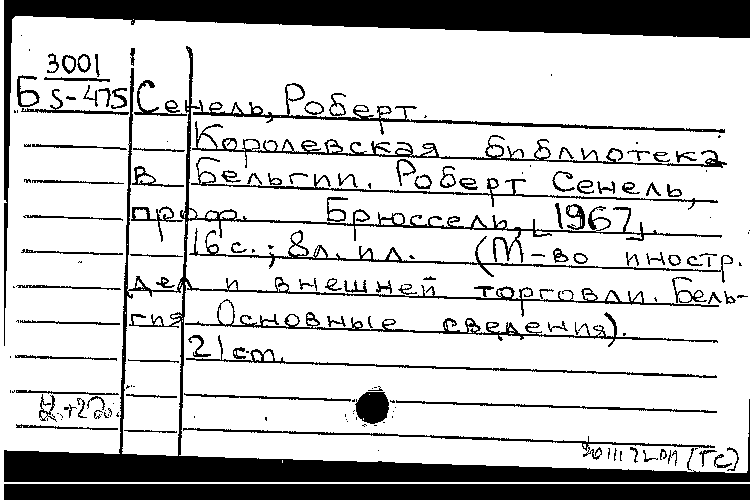 3001
Б S-475 Сенель, Роберт.
Королевская библиотека
в Бельгии. Роберт Сенель,
проф. Брюссель, [1967].
16 с.; 8 л. ил. (М-во иностр.
дел и внешней торговли. Бель-
гия. Основные сведения).
21 cm.
(ГС)